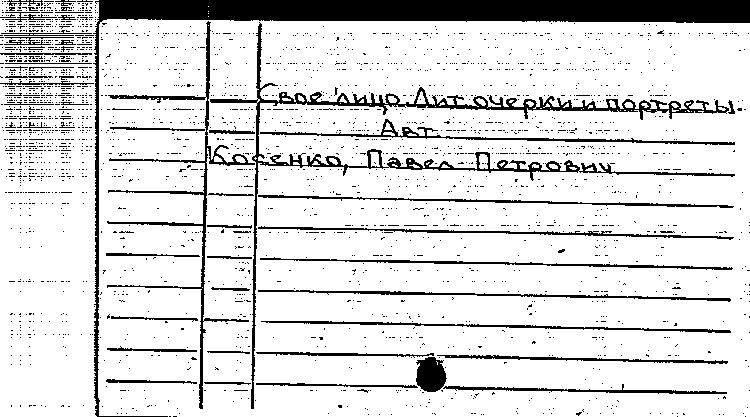 Свое лицо. Лит. очерки и портреты.
Авт.
Косенко, Павел Петрович